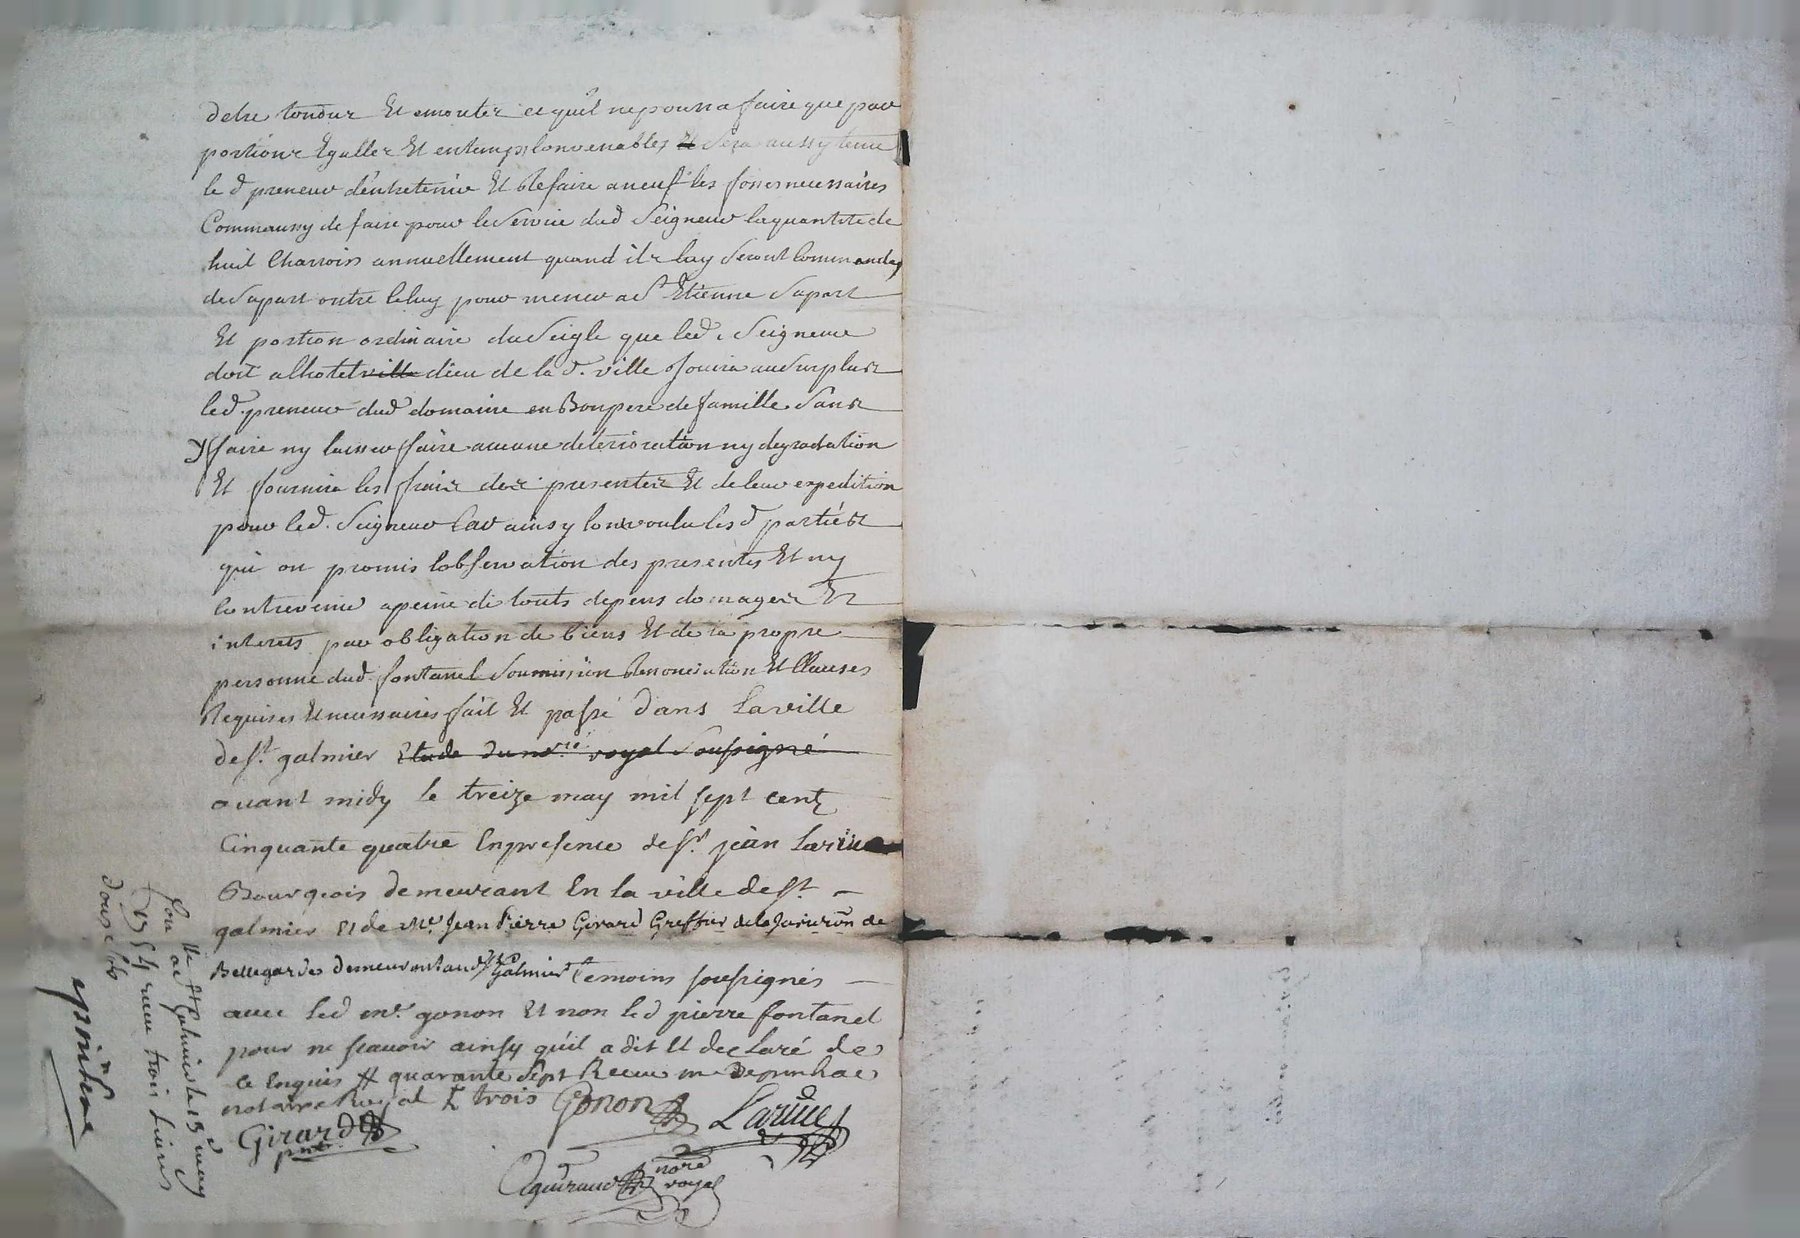 detre tondur Et emonter ce quil ne pourra faire que par
portions Egalles Et entemps Convenables Et Sera aussy tenu
le d preneur dentretenir Et Refaire aneuf les fosses necessaires
Commaussy de faire pour le Service dud Seigneur la quantité de
huit Charrois annuellement quand ils luy Seront Commandes
de Sapart outre Celuy pour mener a St Etienne Sapart
Et portion ordinaire du Seigle que led. Seigneur
doit alhotel ville dieu de la d. ville Jouira au Surplus
led. preneur dud domaine en Bonpere de famille Sans
y faire ny laisser faire aucune deterioration ny degradation
Et fournira les frais des presentes Et de leur expedition
pour led. Seigneur Car ainsy lon voulu les d parties
qui on promis lobservation des presentes Et ny
Contrevenir apeine de touts depens domages Et
interets par obligation de biens Et de la propre
personne dud. fontanel Soumission Renonciation Et Clauses
Requises Et necessaires fait Et passé dans Laville
de st. galmier Etude du nore. royal Soussigné
avant midy le treize may mil sept cent
Cinquante quatre En presence de sr. jean Larüe
Bourgeois demeurant En la ville de st
galmier Et de Me. Jean Pierre Girard Greffier de la Jurisron de
Bellegarde demeurant aud St Galmier temoins soussignés
avec led mr. gonon Et non led pierre fontanel
pour ne scavoir ainsy quil a dit Et declaré de
ce Enquis # quarante Sept Receu me
notaire Royal trois Gonon Larüe
Girard
pnt
nore
royal
St Galmier le 15 may
1754 receu trois Livres
douze sols